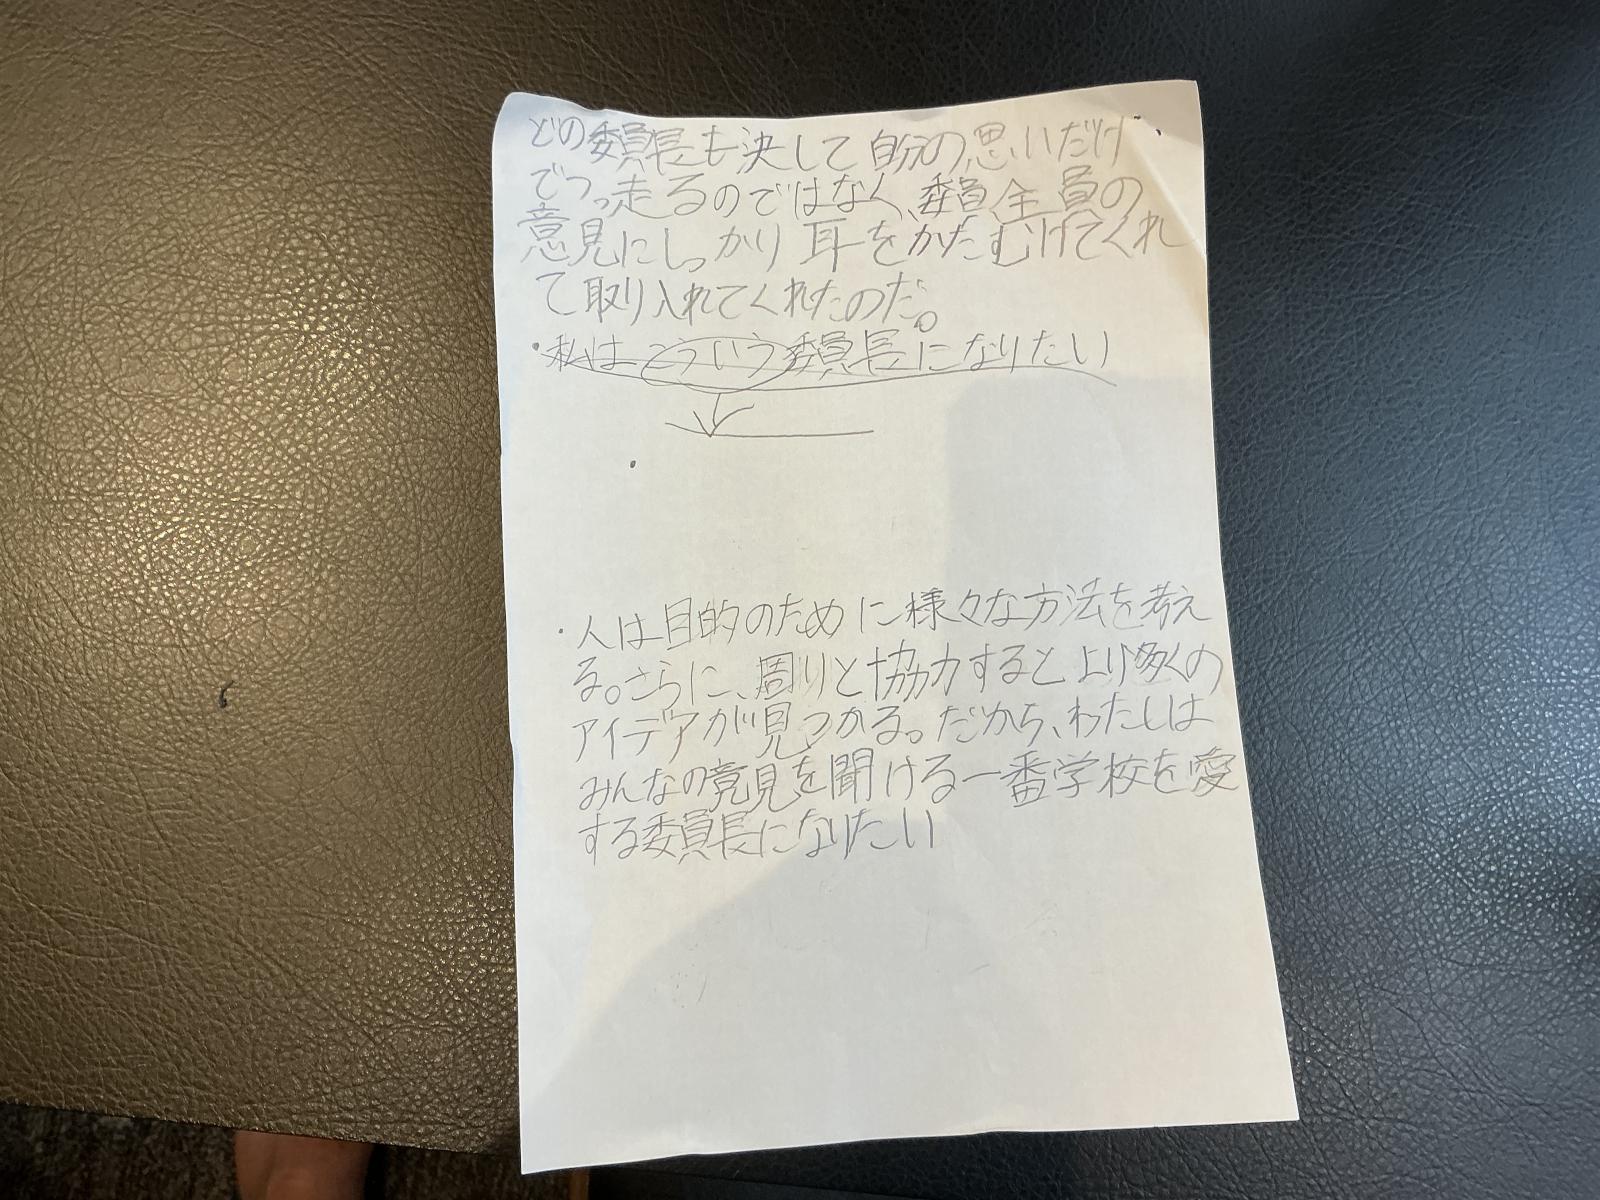 どの委員長も決して自分の思いだけ
でつっ走るのではなく、委員全員の
意見にしっかり耳をかたむけてくれ
て取り入れてくれたのだ。
・私はこういう委員長になりたい
・人は目的のために様々な方法を考え
る。さらに、周りと協力するとより多くの
アイデアが見つかる。だから、わたしは
みんなの意見を聞ける一番学校を愛
する委員長になりたい